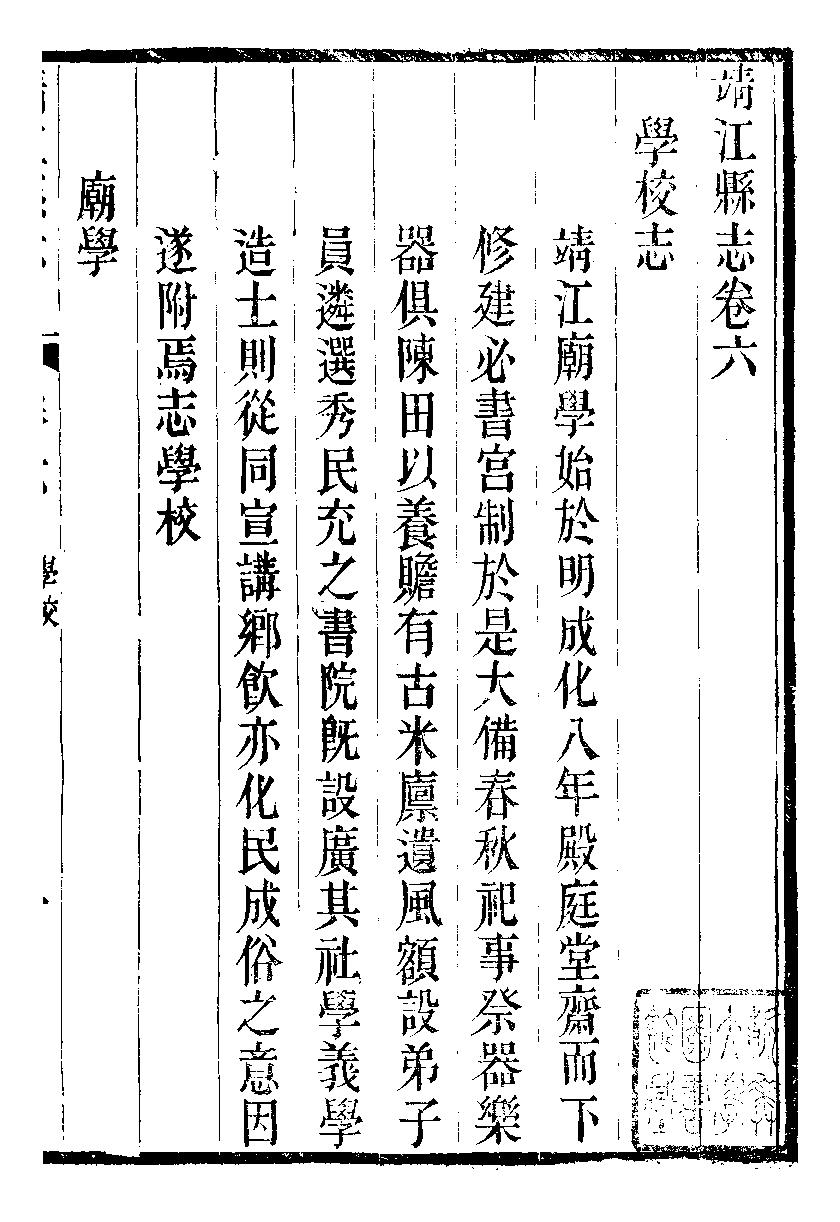 靖江縣志卷六
學校志
靖江廟學始於明成化八年殿庭堂齋而下
修建必書宫制於是大備春秋祀事祭器樂
器俱陳田以養贍有古米廪遺風額設弟子
員遴選秀民充之書院旣設廣其社學義學
造士則從同宣講鄉飲亦化民成俗之意因
遂附焉志學校
廟學
學校